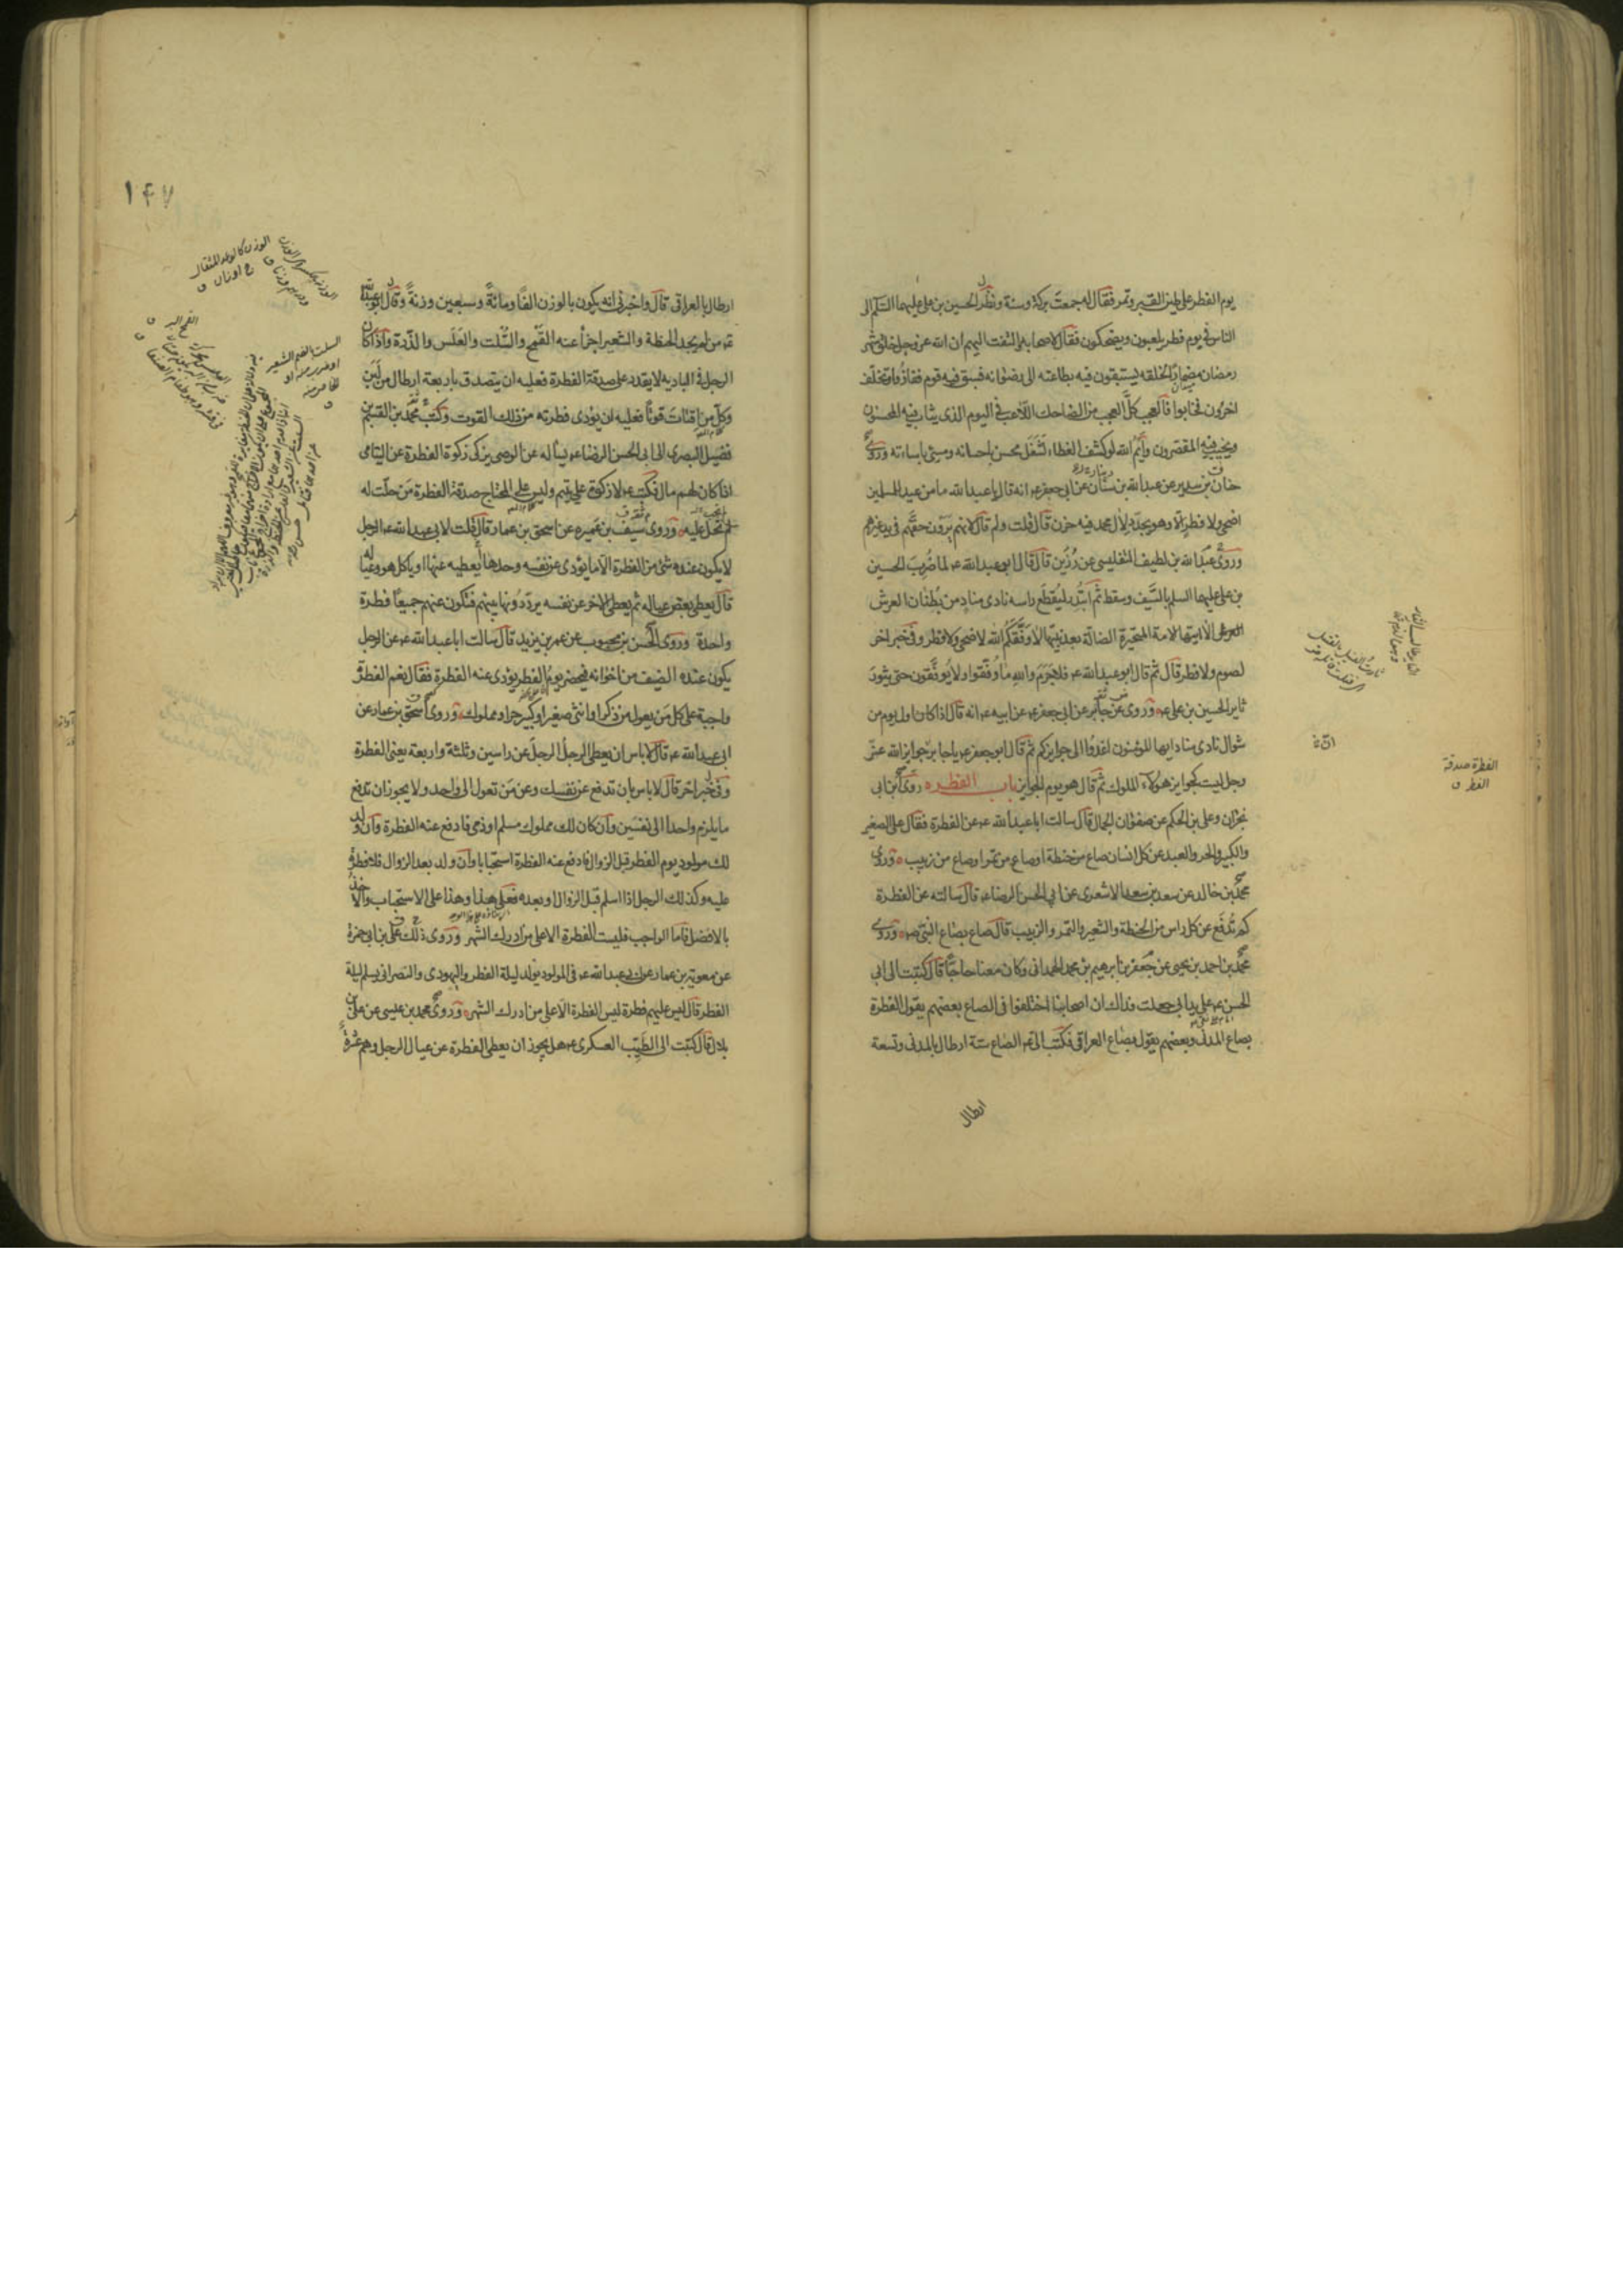 يوم الفطر على طين القبر وتمر فقال له جمعت بركة وسنة ونظر الحسين بن على عليهما السلم الى
الناس فى يوم فطر يلعبون ويضحكون فقال لاصحابه والتفت اليهم ان الله عز وجل خلق شهر
رمضان مضمارا لخلقه يستبقون فيه بطاعته الى رضوانه فسبق فيه قوم ففازوا وتخلف
اخرون فخابوا فالعجب كل العجب من الضاحك اللاعب فى اليوم الذى يثاب فيه المحسنون
ويخيب فيه المقصرون وايم الله لو كشف الغطاء لشغل محسن باحسانه ومسئ باساءته وروى
حنان بن سدير عن عبد الله بن سنان عن ابى جعفر ع انه قال يا عبد الله ما من عيد للمسلمين
اضحى ولا فطر الا وهو يجدد لآل محمد فيه حزن قال قلت ولم قال لانهم يرون حقهم فى يد غيرهم
وروى عبد الله بن لطيف التفليسى عن رزين قال قال ابو عبد الله ع لما ضرب الحسين
بن على عليهما السلم بالسيف وسقط ثم ابتدر ليقطع راسه نادى مناد من بطنان العرش
الا ايتها الامة المتحيرة الضالة بعد نبيها لا وفقكم الله لاضحى ولا فطر وفى خبر اخر
لصوم ولا فطر قال ثم قال ابو عبد الله ع فلا جرم والله ما وفقوا ولا يوفقون حتى يثور
ثاير الحسين بن على ع وروى عن جابر عن ابى جعفر ع عن ابيه ع انه قال اذا كان اول يوم من
شوال نادى مناد ايها المؤمنون اغدوا الى جوايزكم ثم قال ابو جعفر ع يا جابر جوايز الله عز
وجل ليست كجوايز هؤلاء الملوك ثم قال هو يوم الجوايز باب الفطره روى ابن ابى
نجران وعلى بن الحكم عن صفوان الجمال قال سالت ابا عبد الله ع عن الفطرة فقال على الصغير
والكبير والحر والعبد عن كل انسان صاع من حنطة او صاع من تمر او صاع من زبيب وروى
محمد بن خالد عن سعد بن سعد الاشعرى عن ابى الحسن الرضا ع قال سالته عن الفطرة
كم تدفع عن كل راس من الحنطة والشعير والتمر والزبيب قال صاع بصاع النبى ص وروى
محمد بن احمد بن يحيى عن جعفر بن ابرهيم بن محمد الهمدانى وكان معنا حاجا قال كتبت الى ابى
الحسن ع على يد ابى جعلت فداك ان اصحابنا اختلفوا فى الصاع بعضهم يقول الفطرة
بصاع المدنى وبعضهم يقول بصاع العراقى فكتب الى ع الصاع ستة ارطال بالمدنى وتسعة
ارطال
الفطرة صدقة
الفطر ق
١۴٧
ارطال بالعراقى قال واخبرنى انه يكون بالوزن الفا ومائة وسبعين وزنة وقال ابو عبد الله
ع من لم يجد الحنطة والشعير اجزا عنه القمح والسلت والعلس والذرة واذا كان
الرجل فى البادية لا يقدر على صدقة الفطرة فعليه ان يتصدق باربعة ارطال من لبن
وكل من اقتات قوتا فعليه ان يؤدى فطرته من ذلك القوت وكتب محمد بن القسم بن
فضيل البصرى الى ابى الحسن الرضا ع يساله عن الوصى يزكى زكوة الفطرة عن اليتامى
اذا كان لهم مال فكتب ع لا زكوة على يتيم وليس على المحتاج صدقة الفطرة من حلت له
لم تحل عليه وروى سيف بن عميره عن اسحق بن عمار قال قلت لابى عبد الله ع الرجل
لا يكون عنده شئ من الفطرة الا ما يؤدى عن نفسه وحدها يعطيه عنها او ياكل هو وعياله
قال يعطى بعض عياله ثم يعطى الاخر عن نفسه يرددونها بينهم فتكون عنهم جميعا فطرة
واحدة وروى الحسن بن محبوب عن عمر بن يزيد قال سالت ابا عبد الله ع عن الرجل
يكون عنده الضيف من اخوانه فيحضر يوم الفطر يؤدى عنه الفطرة فقال نعم الفطرة
واجبة على كل من يعول من ذكر او انثى صغير او كبير حر او مملوك وروى اسحق بن عمار عن
ابى عبد الله ع قال لا باس ان يعطى الرجل الرجل عن راسين وثلثة واربعة يعنى الفطرة
وفى خبر اخر قال لا باس بان تدفع عن نفسك وعن من تعول الى واحد ولا يجوز ان تدفع
ما يلزم واحدا الى نفسين وان كان لك مملوك مسلم او ذمى فادفع عنه الفطرة وان ولد
لك مولود يوم الفطر قبل الزوال فادفع عنه الفطرة استحبابا وان ولد بعد الزوال فلا فطرة
عليه وكذلك الرجل اذا اسلم قبل الزوال او بعده فعلى هذا وهذا على الاستحباب والاخذ
بالافضل فاما الواجب فليست الفطرة الا على من ادرك الشهر وروى ذلك على بن ابى حمزة
عن معوية بن عمار عن ابى عبد الله ع فى المولود يولد ليلة الفطر واليهودى والنصرانى يسلم ليلة
الفطر قال ليس عليهم فطرة ليس الفطرة الا على من ادرك الشهر وروى محمد بن عيسى عن على بن
بلال قال كتبت الى الطيب العسكرى ع هل يجوز ان يعطى الفطرة عن عيال الرجل وهم عشرة